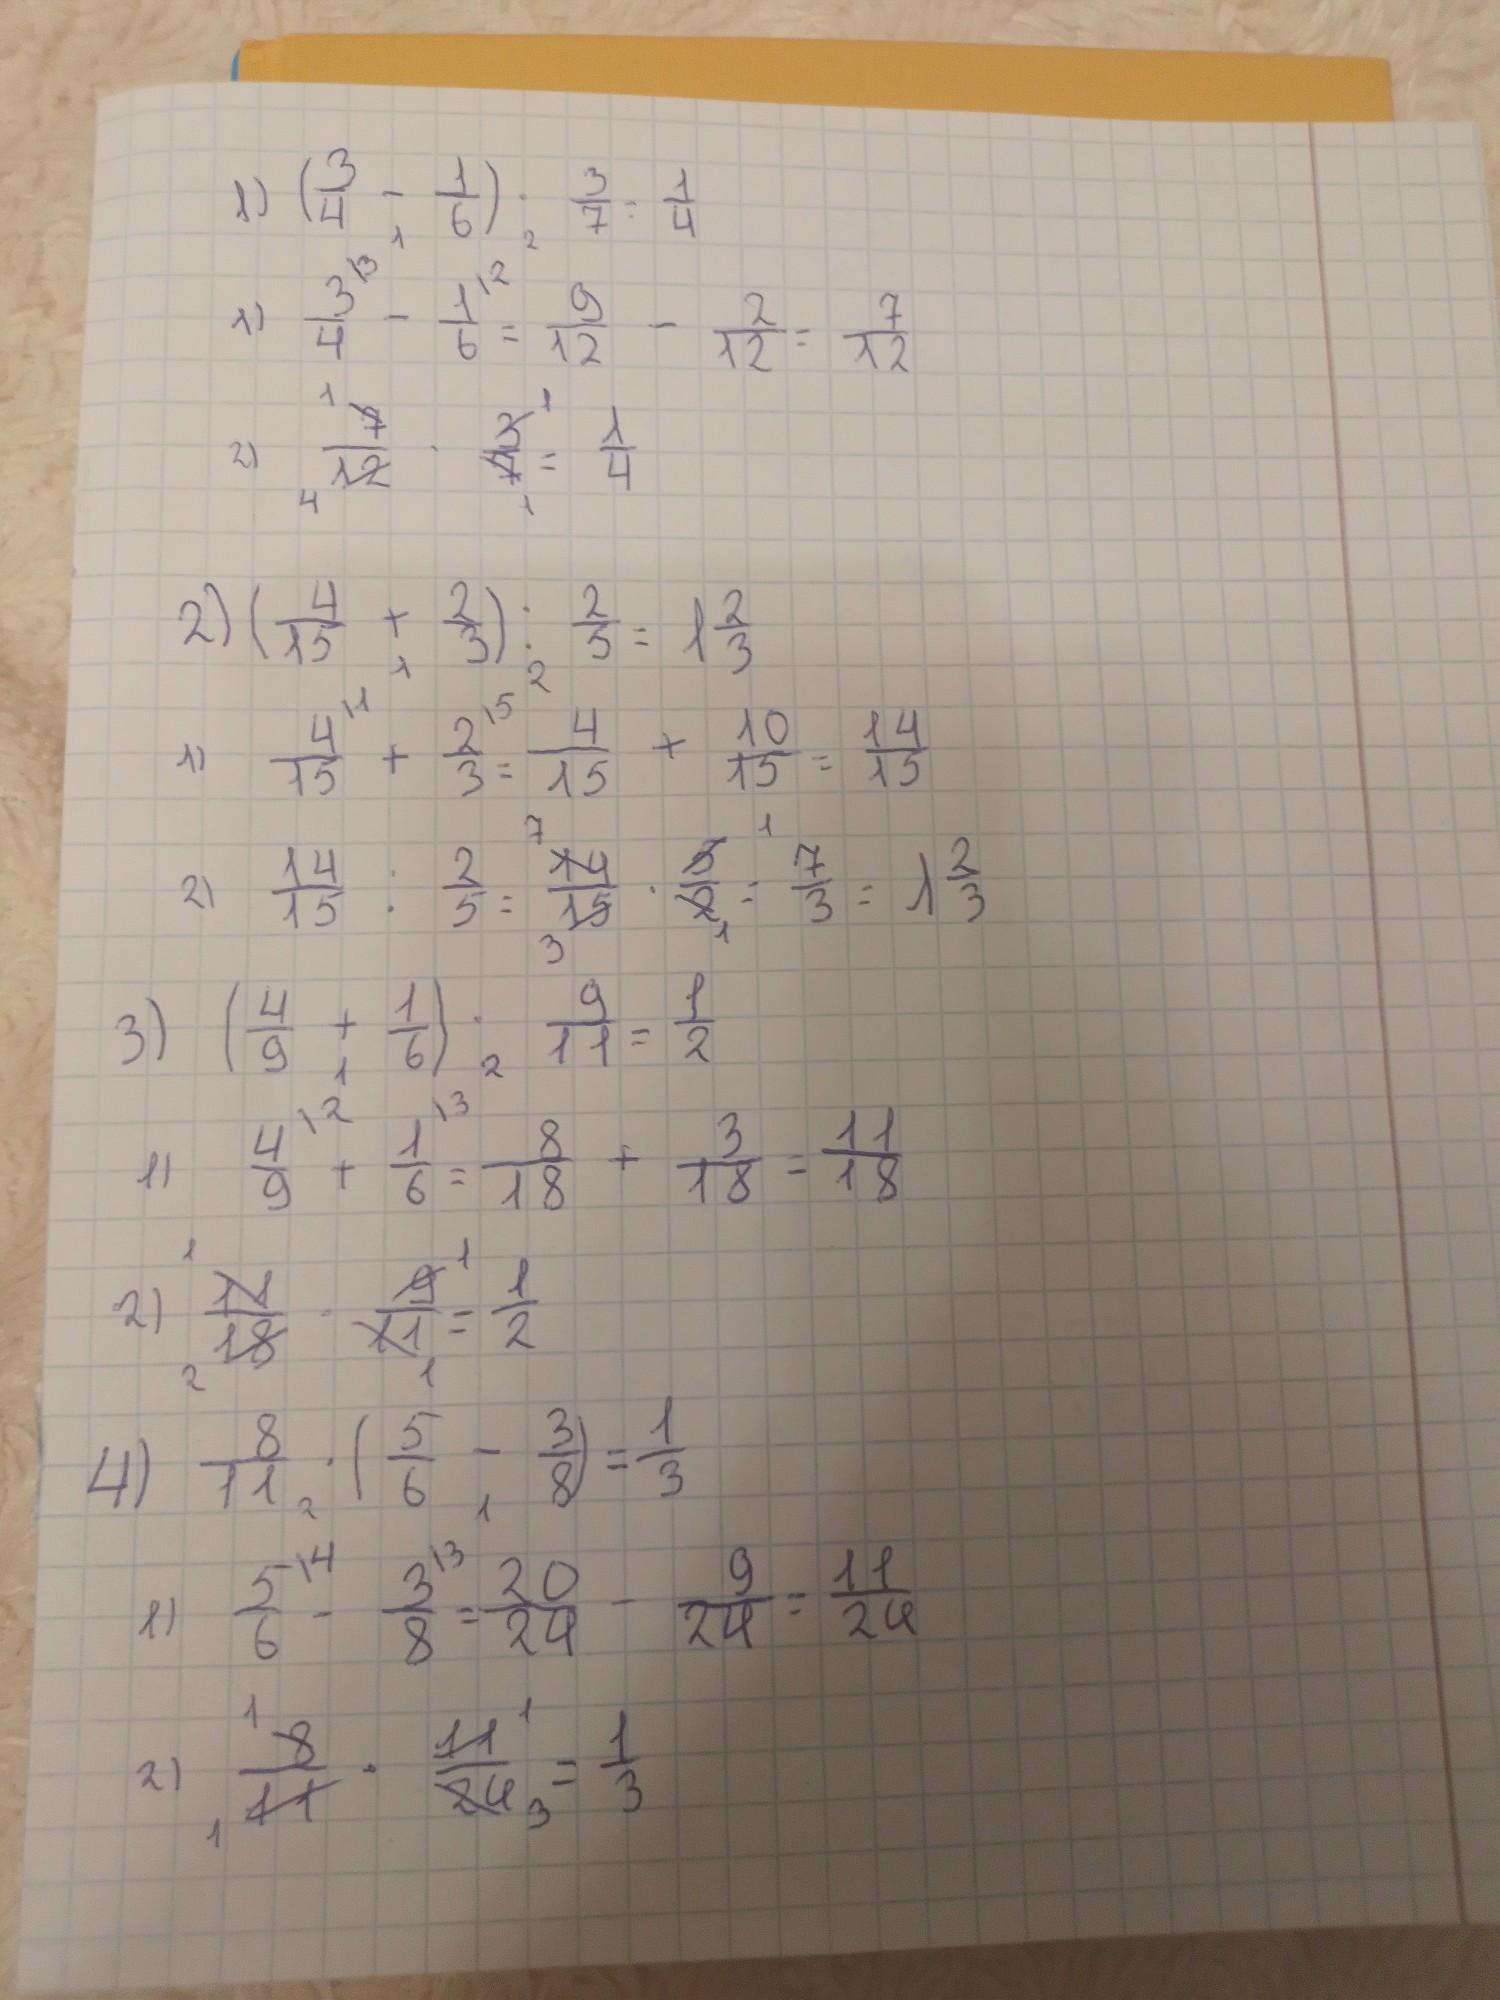 1) (3/4 - 1/6) · 3/7 = 1/4
1 2
1) 3/4 \3 - 1/6 \2 = 9/12 - 2/12 = 7/12
2) 1 7/12 4 · 3/7 1 1 = 1/4
2) (4/15 + 2/3) : 2/5 = 1 2/3
1 2
1) 4/15 \1 + 2/3 \5 = 4/15 + 10/15 = 14/15
2) 14/15 : 2/5 = 7 14/15 3 · 5/2 1 1 = 7/3 = 1 2/3
3) (4/9 + 1/6) · 9/11 = 1/2
1 2
1) 4/9 \2 + 1/6 \3 = 8/18 + 3/18 = 11/18
2) 1 11/18 2 · 9/11 1 1 = 1/2
4) 8/11 · (5/6 - 3/8) = 1/3
2 1
1) 5/6 \4 - 3/8 \3 = 20/24 - 9/24 = 11/24
2) 1 8/11 1 · 11/24 1 3 = 1/3